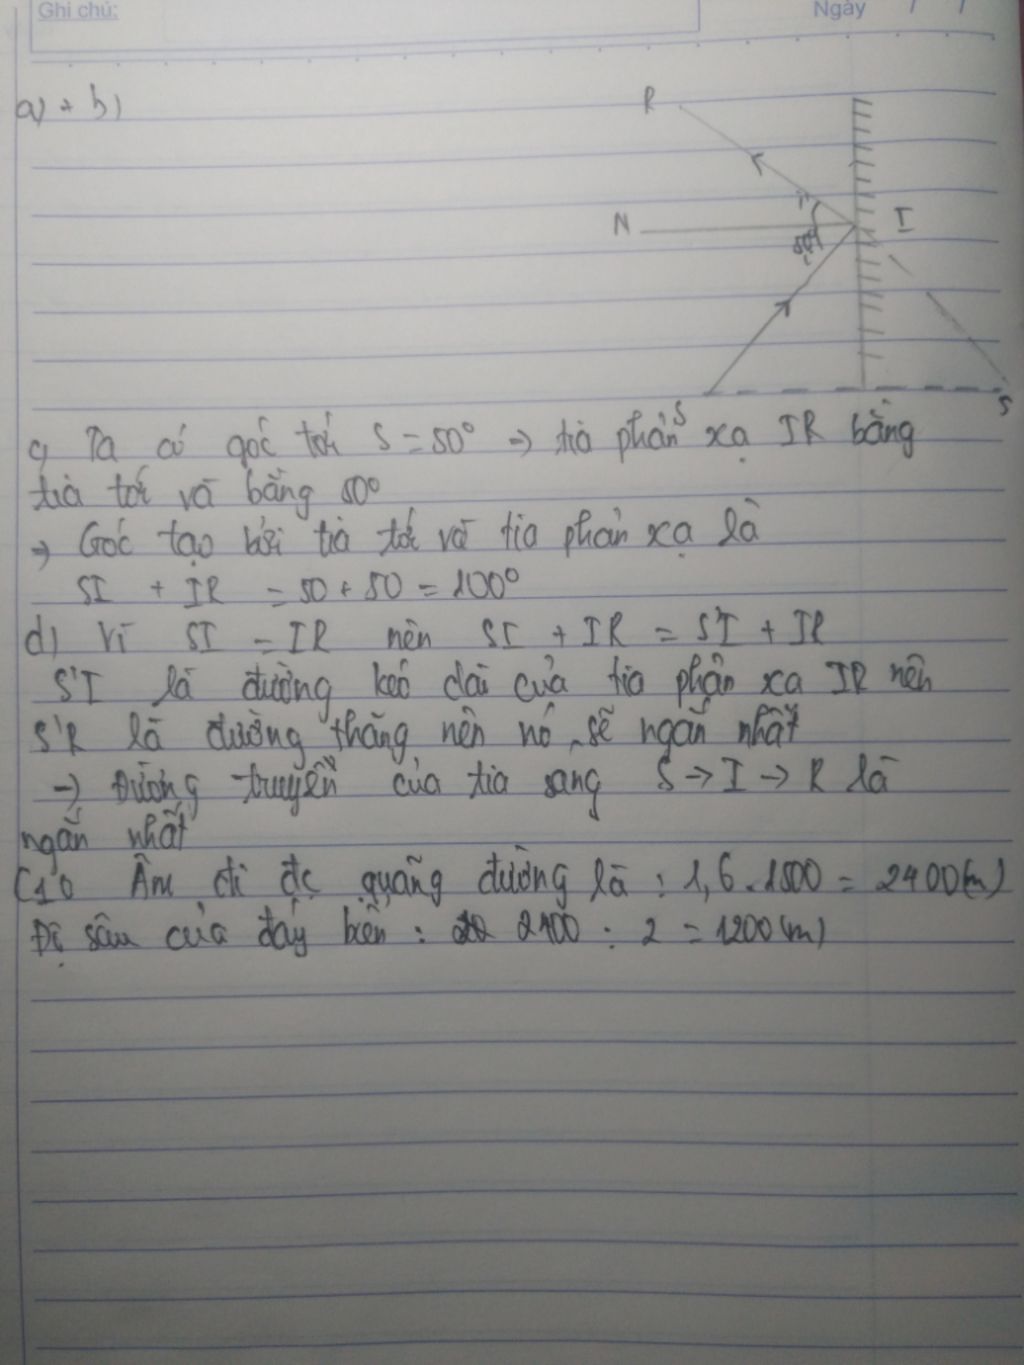 Ghi chú:
Ngày / /
a) + b)
R
N
I
i'
50°
i
S
S'
c) Ta có góc tới S = 50° => tia phản xạ IR bằng
tia tới và bằng 50°
=> Góc tạo bởi tia tới và tia phản xạ là
SI + IR = 50 + 50 = 100°
d) Vì SI = IR nên SI + IR = S'I + IR
S'I là đường kéo dài của tia phản xạ IR nên
S'R là đường thẳng nên nó sẽ ngắn nhất
-> Đường truyền của tia sang S -> I -> R là
ngắn nhất
C10 Âm đi đc quãng đường là : 1,6 . 1500 = 2400(m)
Độ sâu của đáy biển : 2400 : 2 = 1200(m)